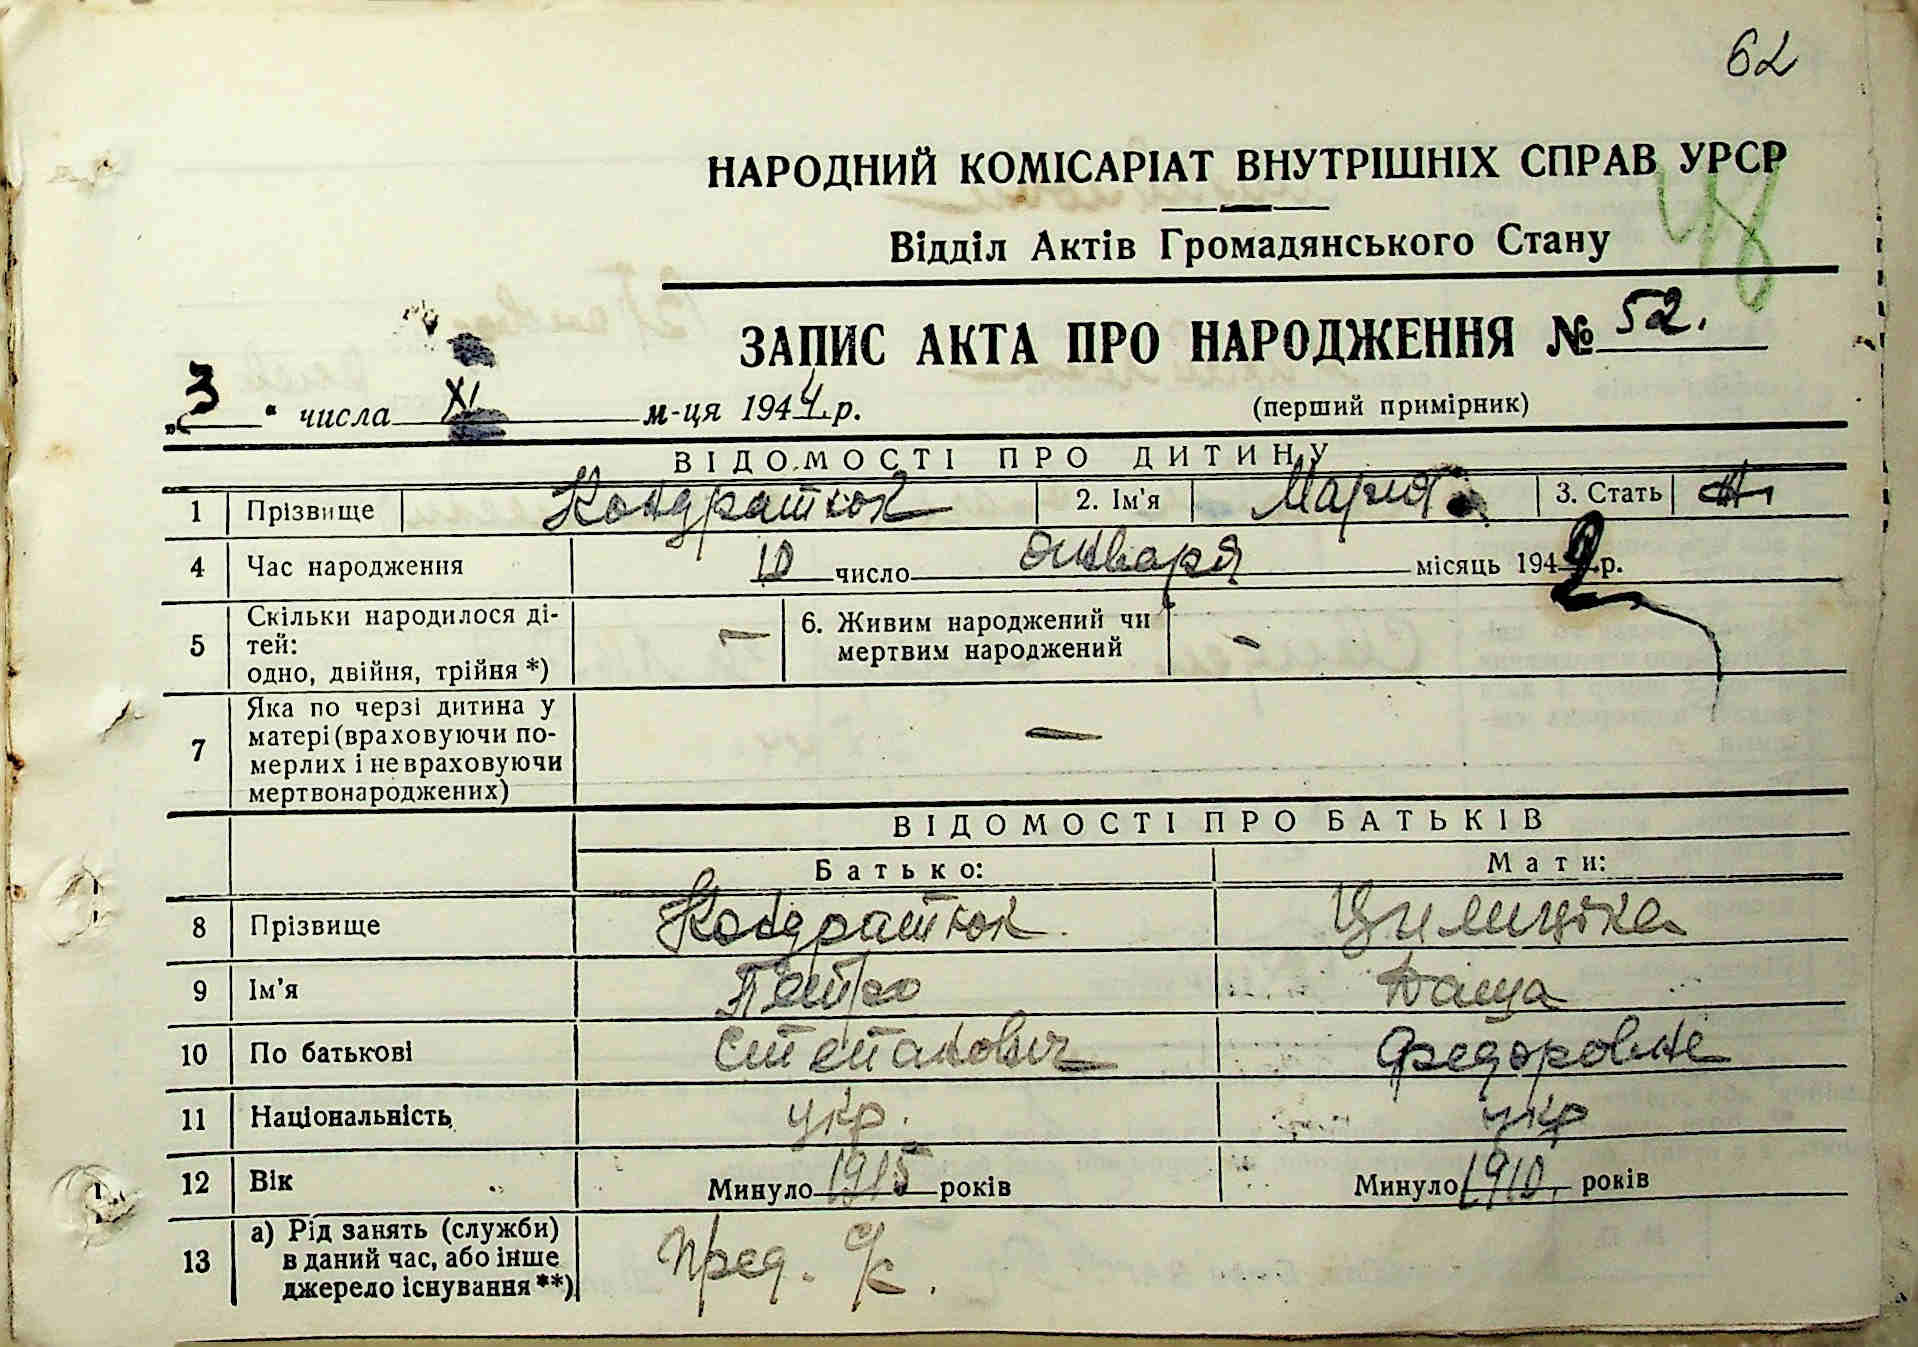 62
НАРОДНИЙ КОМІСАРІАТ ВНУТРІШНІХ СПРАВ УРСР
48
Відділ Актів Громадянського Стану
ЗАПИС АКТА ПРО НАРОДЖЕННЯ № 52.
„3“ числа XI м-ця 1944 р.
(перший примірник)
ВІДОМОСТІ ПРО ДИТИНУ
1 Прізвище Кондратюк 2. Ім'я Мария 3. Стать
4 Час народження 10 число января місяць 1942 р.
5 Скільки народилося ді-
тей:
одно, двійня, трійня *) —
6. Живим народжений чи
мертвим народжений -
7 Яка по черзі дитина у
матері (враховуючи по-
мерлих і не враховуючи
мертвонароджених) —
ВІДОМОСТІ ПРО БАТЬКІВ
Батько: Мати:
8 Прізвище Кондратюк
9 Ім'я Петро Даша
10 По батькові Степанович Федоровне
11 Національність укр. укр
12 Вік Минуло 1915 років Минуло 1910. років
13 а) Рід занять (служби)
в даний час, або інше
джерело існування **)
Пред. с/с.